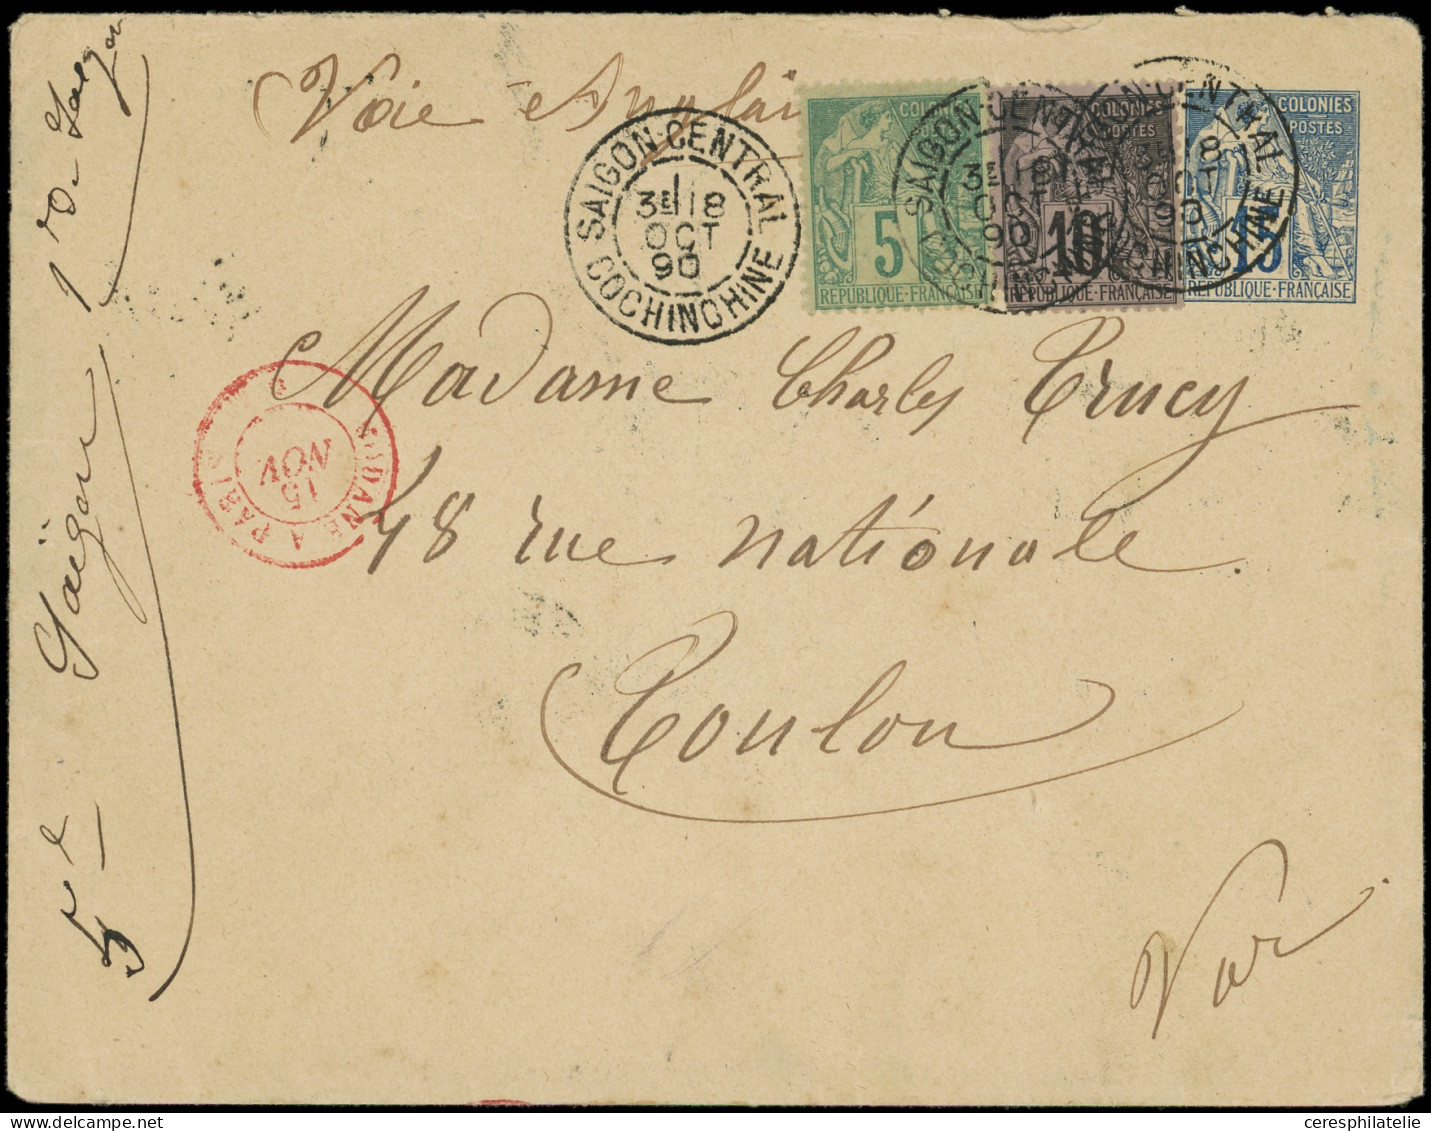 Voie Anglai
COLONIES
POSTES
5
RÉPUBLIQUE-FRANÇAISE
COLONIES
POSTES
10
RÉPUBLIQUE-FRANÇAISE
COLONIES
POSTES
15
RÉPUBLIQUE-FRANÇAISE
SAIGON-CENTRAL
3E 18
OCT
90
COCHINCHINE
SAIGON-CENTRAL
3E 18
OCT
90
COCHINCHINE
SAIGON-CENTRAL
3E 18
OCT
90
COCHINCHINE
Madame Charles Trucy
48 rue nationale.
Toulon
Var
MODANE A PARIS
15
NOV
Saïgon
ceresphilatelie.com